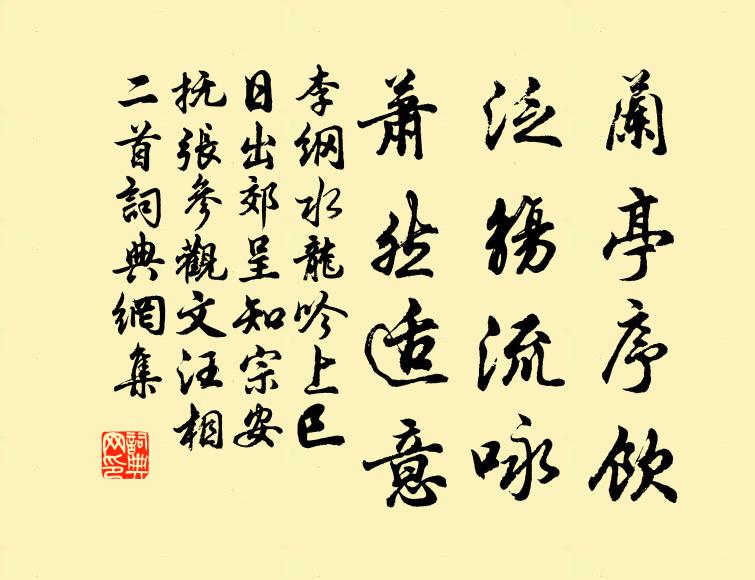 蘭亭序飲
泛觴流咏
蕭然适意
李綱水龍吟上巳
日出郊呈知宗安
撫張參觀文汪相
二首詞典網集
詞典網印